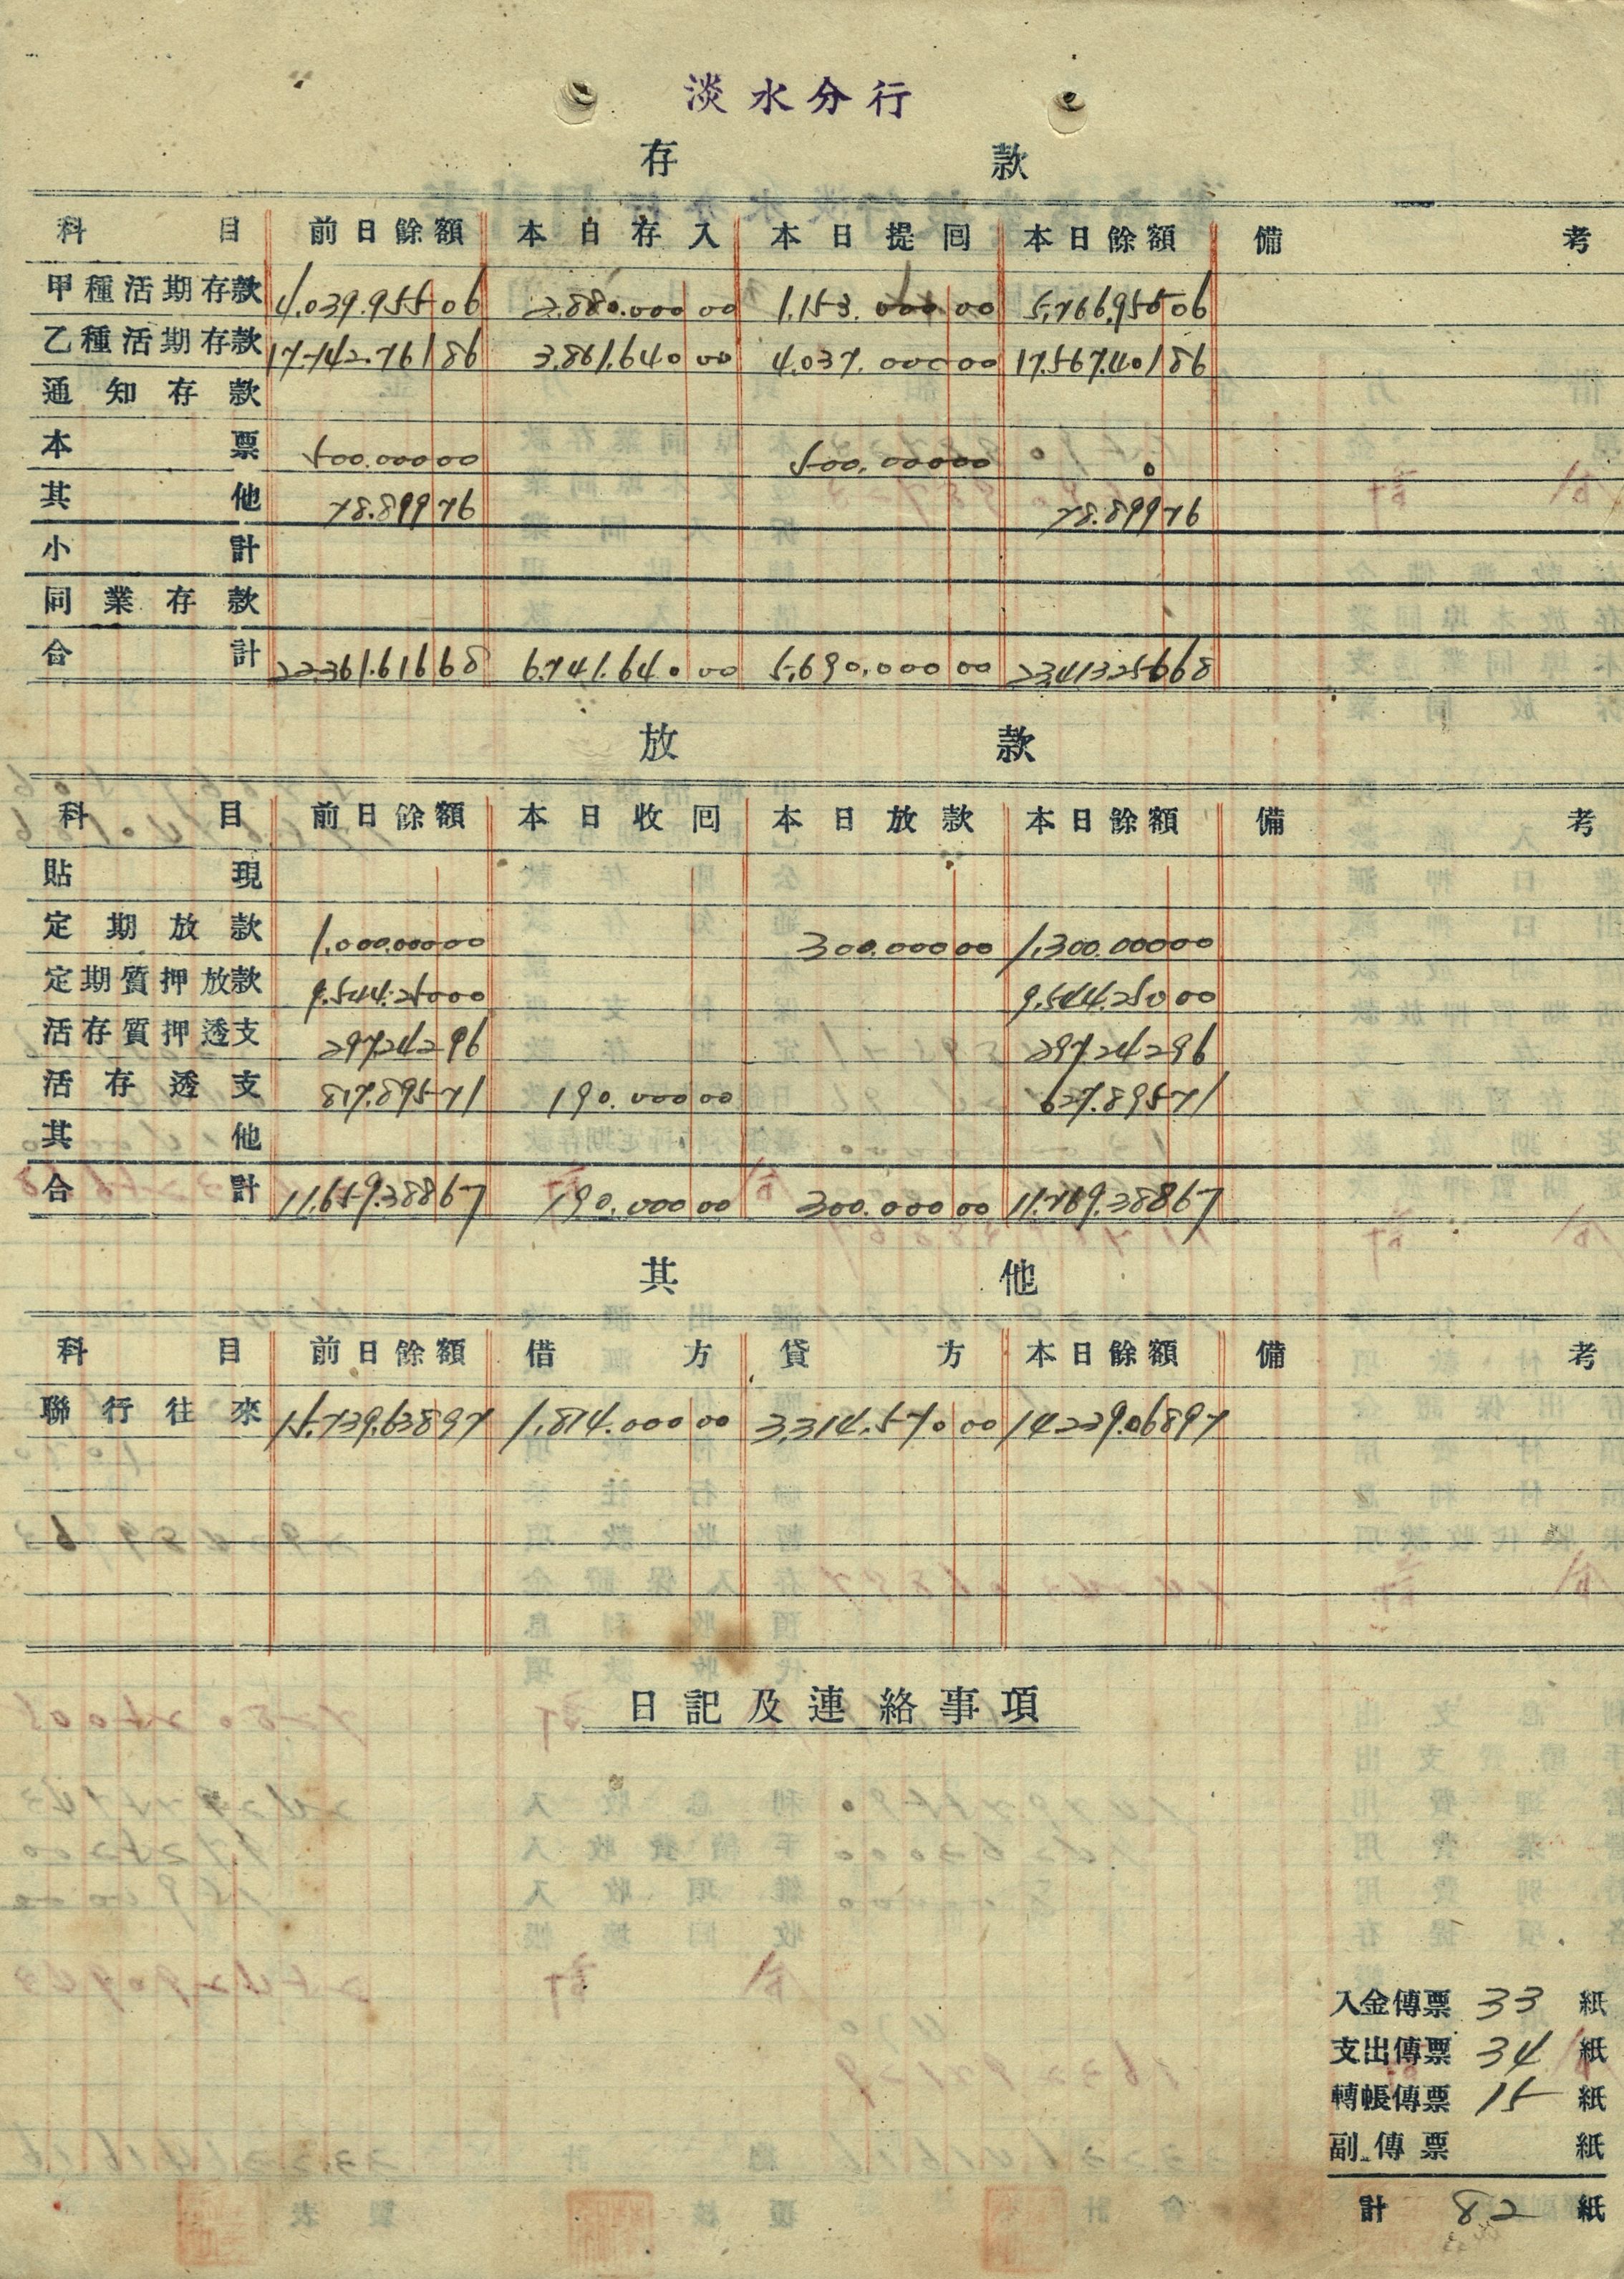 淡水分行
存款
科目 前日餘額 本日存入 本日提回 本日餘額 備考
甲種活期存款 4.039.955 06 2.880.000 00 1.153.000 00 5.766.955 06
乙種活期存款 17.742.761 86 3.861.640 00 4.037.000 00 17.567.401 86
通知存款
本票 500.000 00 500.000 00 0
其他 78.899 76 78.899 76
小計
同業存款
合計 22.361.616 68 6.741.640 00 5.690.000 00 23.413.256 68
放款
科目 前日餘額 本日收回 本日放款 本日餘額 備考
貼現
定期放款 1.000.000 00 300.000 00 1.300.000 00
定期質押放款 9.544.250 00 9.544.250 00
活存質押透支 297.242 96 297.242 96
活存透支 817.895 71 190.000 00 627.895 71
其他
合計 11.659.388 67 190.000 00 300.000 00 11.769.388 67
其他
科目 前日餘額 借方 貸方 本日餘額 備考
聯行往來 15.739.638 97 1.814.000 00 3.314.570 00 14.239.068 97
日記及連絡事項
入金傳票 33 紙
支出傳票 34 紙
轉帳傳票 15 紙
副傳票 紙
計 82 紙